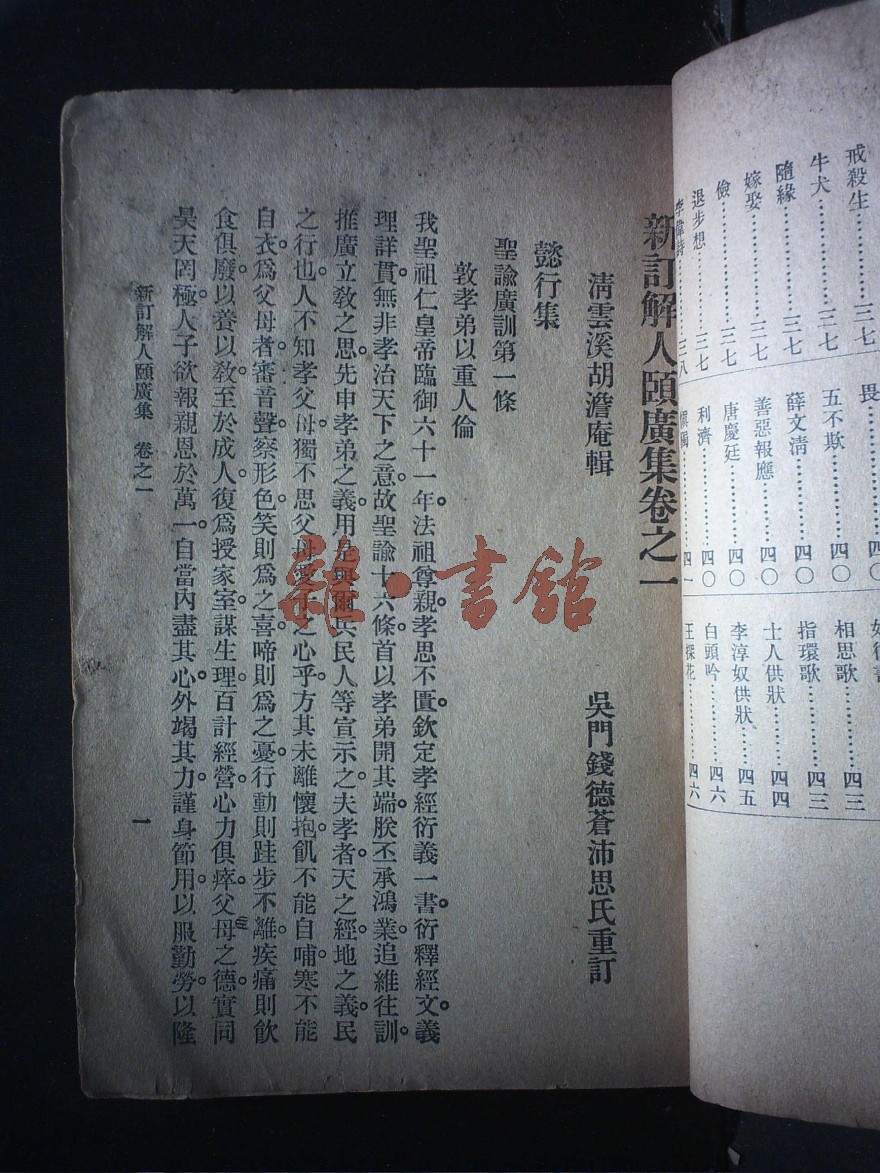 戒殺生………三七
牛犬………三七
隨緣………三七
嫁娶………三七
儉………三七
退步想………三七
李偉詩………三八
畏………四〇
五不欺………四〇
薛文清………四〇
善惡報應………四〇
唐慶廷………四〇
利濟………四〇
四一
相思歌………四三
指環歌………四三
士人供狀………四四
李淳奴供狀………四五
白頭吟………四六
王探花………四六
新訂解人頤廣集卷之一
清雲溪胡澹庵輯　吳門錢德蒼沛思氏重訂
懿行集
聖諭廣訓第一條
敦孝弟以重人倫
我聖祖仁皇帝臨御六十一年法祖尊親孝思不匱。欽定孝經衍義一書衍釋經文。義
理詳貫。無非孝治天下之意。故聖諭十六條。首以孝弟開其端。朕丕承鴻業追維往訓。
推廣立敎之思。先申孝弟之義。用是與爾兵民人等宣示之。夫孝者天之經地之義。民
之行也。人不知孝父母。獨不思父母愛子之心乎。方其未離懷抱。飢不能自哺寒不能
自衣。爲父母者。審音聲。察形色。笑則爲之喜。啼則爲之憂。行動則跬步不離。疾痛則飮
食俱廢。以養以敎。至於成人。復爲授家室謀生理。百計經營。心力俱瘁。父母之德。實同
昊天罔極。人子欲報親恩於萬一。自當內盡其心。外竭其力。謹身節用。以服勤勞。以隆
新訂解人頤廣集　卷之一　一
雜·書館